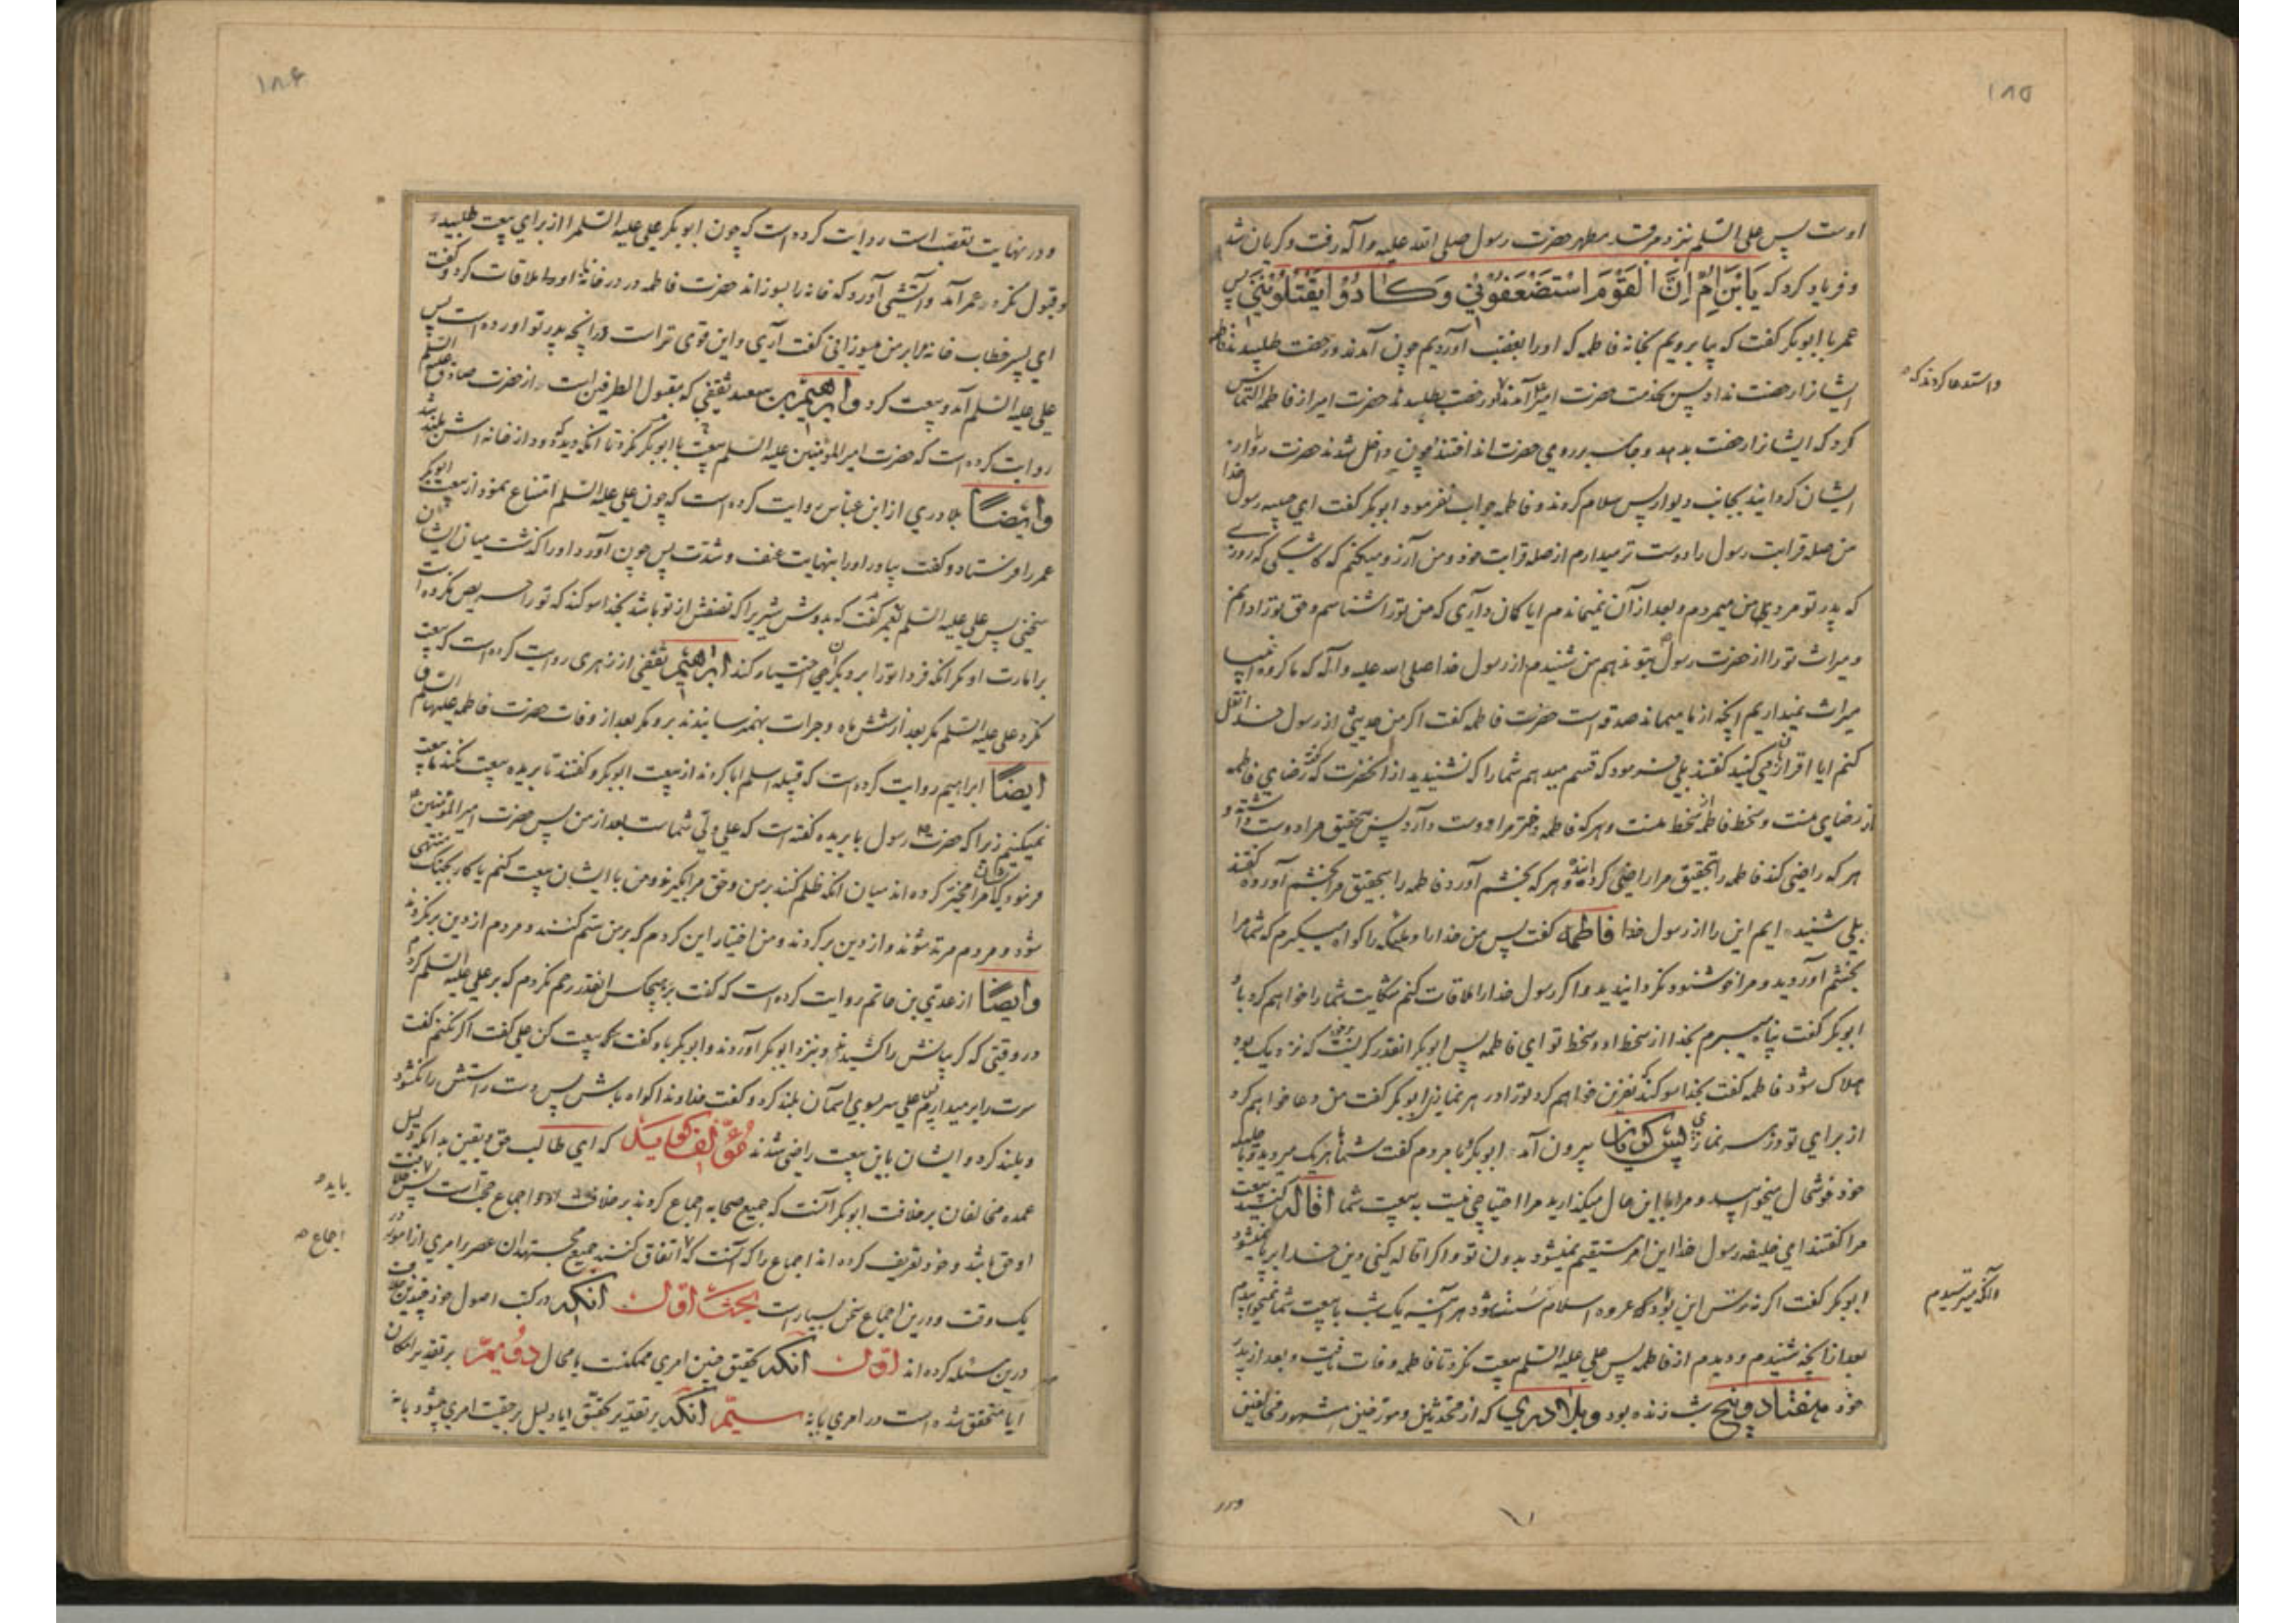 ۱۸۵
اوست پس علی السلم نزد مرقد مطهر حضرت رسول صلی الله علیه وآله رفت و گریان شد
و فریاد کرد که یَابْنَ اُمَّ اِنَّ الْقَوْمَ اسْتَضْعَفُوْنِيْ وَكَادُوْا يَقْتُلُوْنَنِيْ پس
عمر با ابوبکر گفت که بیا برویم بخانه فاطمه که او را بغضب آوردیم چون آمدند و رخصت طلبیدند فاطمه
ایشانرا رخصت نداد پس بخدمت حضرت امیر آمدند و رخصت طلبیدند حضرت امیر از فاطمه التماس
واستدعا کردند که
کرد که ایشانرا رخصت بدهد و جامه بر روی حضرت انداختند چون داخل شدند حضرت رو را از
ایشان گردانید بجانب دیوار پس سلام کردند و فاطمه جواب نفرمود ابوبکر گفت ای حبیبه رسول خدا
من صله قرابت رسول را دوست تر میدارم از صله قرابت خود و من آرزو میکنم که کاشکی که روزے
که پدر تو مرد من میمردم و بعد از آن نمیماندم ایا گمان داری که من تو را شناسم و حق تو را دانم
و میراث تو را از حضرت رسول بتو ندهم من شنیدم از رسول خدا صلی الله علیه وآله که ما گروه انبیا
میراث نمیداریم آنچه از ما میماند صدقه است حضرت فاطمه گفت اگر من حدیثی از رسول خدا نقل
کنم ایا اقرار می کنید گفتند بلی فرمود که قسم میدهم شما را که نشنیدید از آنحضرت که گفت رضای فاطمه
از رضای منست و سخط فاطمه از سخط منست و هر که فاطمه دختر مرا دوست دارد پس بتحقیق مرا دوست داشته و
هر که راضی کند فاطمه را بتحقیق مرا راضی گردانیده و هر که بخشم آورد فاطمه را بتحقیق مرا بخشم آورده گفتند
بلی شنیده ایم این را از رسول خدا فاطمه گفت پس من خدا را و ملائکه را گواه میگیرم که شما مرا
بخشم آوردید و مرا خوشنود نگردانیدید و اگر رسول خدا را ملاقات کنم شکایت شما را خواهم کرد باو
ابوبکر گفت پناه میبرم بخدا از سخط او و سخط تو ای فاطمه پس ابوبکر انقدر گریست که نزدیک بود
هلاک شود فاطمه گفت بخدا سوگند که نفرین خواهم کرد تو را در هر نمازی ابوبکر گفت من دعا خواهم کرد
از برای تو در هر نمازی پس گریان بیرون آمد ابوبکر با مردم گفت شما هر یک میروید و با حلیله
خود خوشحال میخوابید و مرا باین حال میگذارید مرا احتیاجی نیست به بیعت شما اقاله کنید بیعت
مرا گفتند ای خلیفه رسول خدا این امر مستقیم نمیشود بدون تو و اگر اقاله کنی دین خدا برپا نمیشود
ابوبکر گفت اگر نه ترس این بود که عروه اسلام سست شود هر آینه یک شب با بیعت شما نمیخوابیدم
والکه میترسیدم
بعد از آنچه شنیدم و دیدم از فاطمه پس علی علیه السلم بیعت نکرد تا فاطمه وفات یافت و بعد از پدر
خود هفتاد و پنج شب زنده بود و بلادری که از محدثین و مورخین مشهور مخالفین
ودر
۱۸۶
و در نهایت تعصب است روایت کرده است که چون ابوبکر علی علیه السلم را از برای بیعت طلبید
و قبول نکرد عمر آمد و آتشی آورد که خانه را بسوزاند حضرت فاطمه در در خانه او را ملاقات کرد و گفت
ای پسر خطاب خانه را بر من میسوزانی گفت آری و این قوی تر است در آنچه پدر تو آورده است پس
علی علیه السلم آمد و بیعت کرد وابراهیم بن سعید ثقفی که مقبول الطرفین است از حضرت صادق علیه السلم
روایت کرده است که حضرت امیر المؤمنین علیه السلم بیعت با ابوبکر نکرد تا آنکه دید که دود از خانه اش بلند شد
وایضًا بلادری از ابن عباس روایت کرده است که چون علی علیه السلم امتناع نمود از بیعت ابوبکر
عمر را فرستاد و گفت بیاور او را بنهایت عنف و شدت پس چون آورد او را گذشت میان ایشان
سخنی پس علی علیه السلم بعمر گفت که بدوش شیری را که نصفش از تو باشد بخدا سوگند که تو را حریص نکرده است
بر امارت او مگر آنکه فردا تو را بر دیگران اختیار کند ابراهیم ثقفی از زهری روایت کرده است که بیعت
نکرد علی علیه السلم مگر بعد از شش ماه و جرات بهم نرسانیدند بر او مگر بعد از وفات حضرت فاطمه علیها السلم
ایضًا ابراهیم روایت کرده است که قبیله اسلم ابا کردند از بیعت ابوبکر و گفتند تا بریده بیعت نکند ما بیعت
نمیکنیم زیرا که حضرت رسول با بریده گفته است که علی ولی شماست بعد از من پس حضرت امیر المؤمنین
فرمود که ایشان مرا مخیر کرده اند میان آنکه ظلم کنند بر من و حق مرا بگیرند و من با ایشان بیعت کنم یا کار بجنگ منتهی
شود و مردم مرتد شوند و از دین برگردند و من اختیار این کردم که بر من ستم کنند و مردم از دین برنگردند
وایضًا از عدی بن حاتم روایت کرده است که گفت بر هیچکس انقدر رحم نکردم که بر علی علیه السلم کردم
در وقتی که گریبانش را کشیدند و نزد ابوبکر آوردند و ابوبکر باو گفت که بیعت کن علی گفت اگر نکنم گفت
سرت را بر میدارم علی سر بسوی آسمان بلند کرد و گفت خداوندا گواه باش پس دست راستش را نگشود
و بلند کرد و ایشان باین بیعت راضی شدند مؤلف گوید که ای طالب حق و یقین بدانکه دلیل
عمده مخالفان بر خلافت ابوبکر آنست که جمیع صحابه اجماع کردند بر خلافت او و اجماع حجت است پس خلافت
باید
او حق باشد و خود تعریف کرده اند اجماع را که آنست که اتفاق کنند جمیع مجتهدان عصر بر امری از امور در
اجماع
یک وقت و درین اجماع سخن بسیارست بحث اول آنکه در کتب اصول خود چندین خلاف
درین مسئله کرده اند اول آنکه تحقیق چنین امری ممکنست یا محال دویم بر تقدیر امکان
ایا متحقق شده است در امری یا نه سیم آنکه بر تقدیر تحقق ایا دلیل بر حقیت امری میشود یا نه